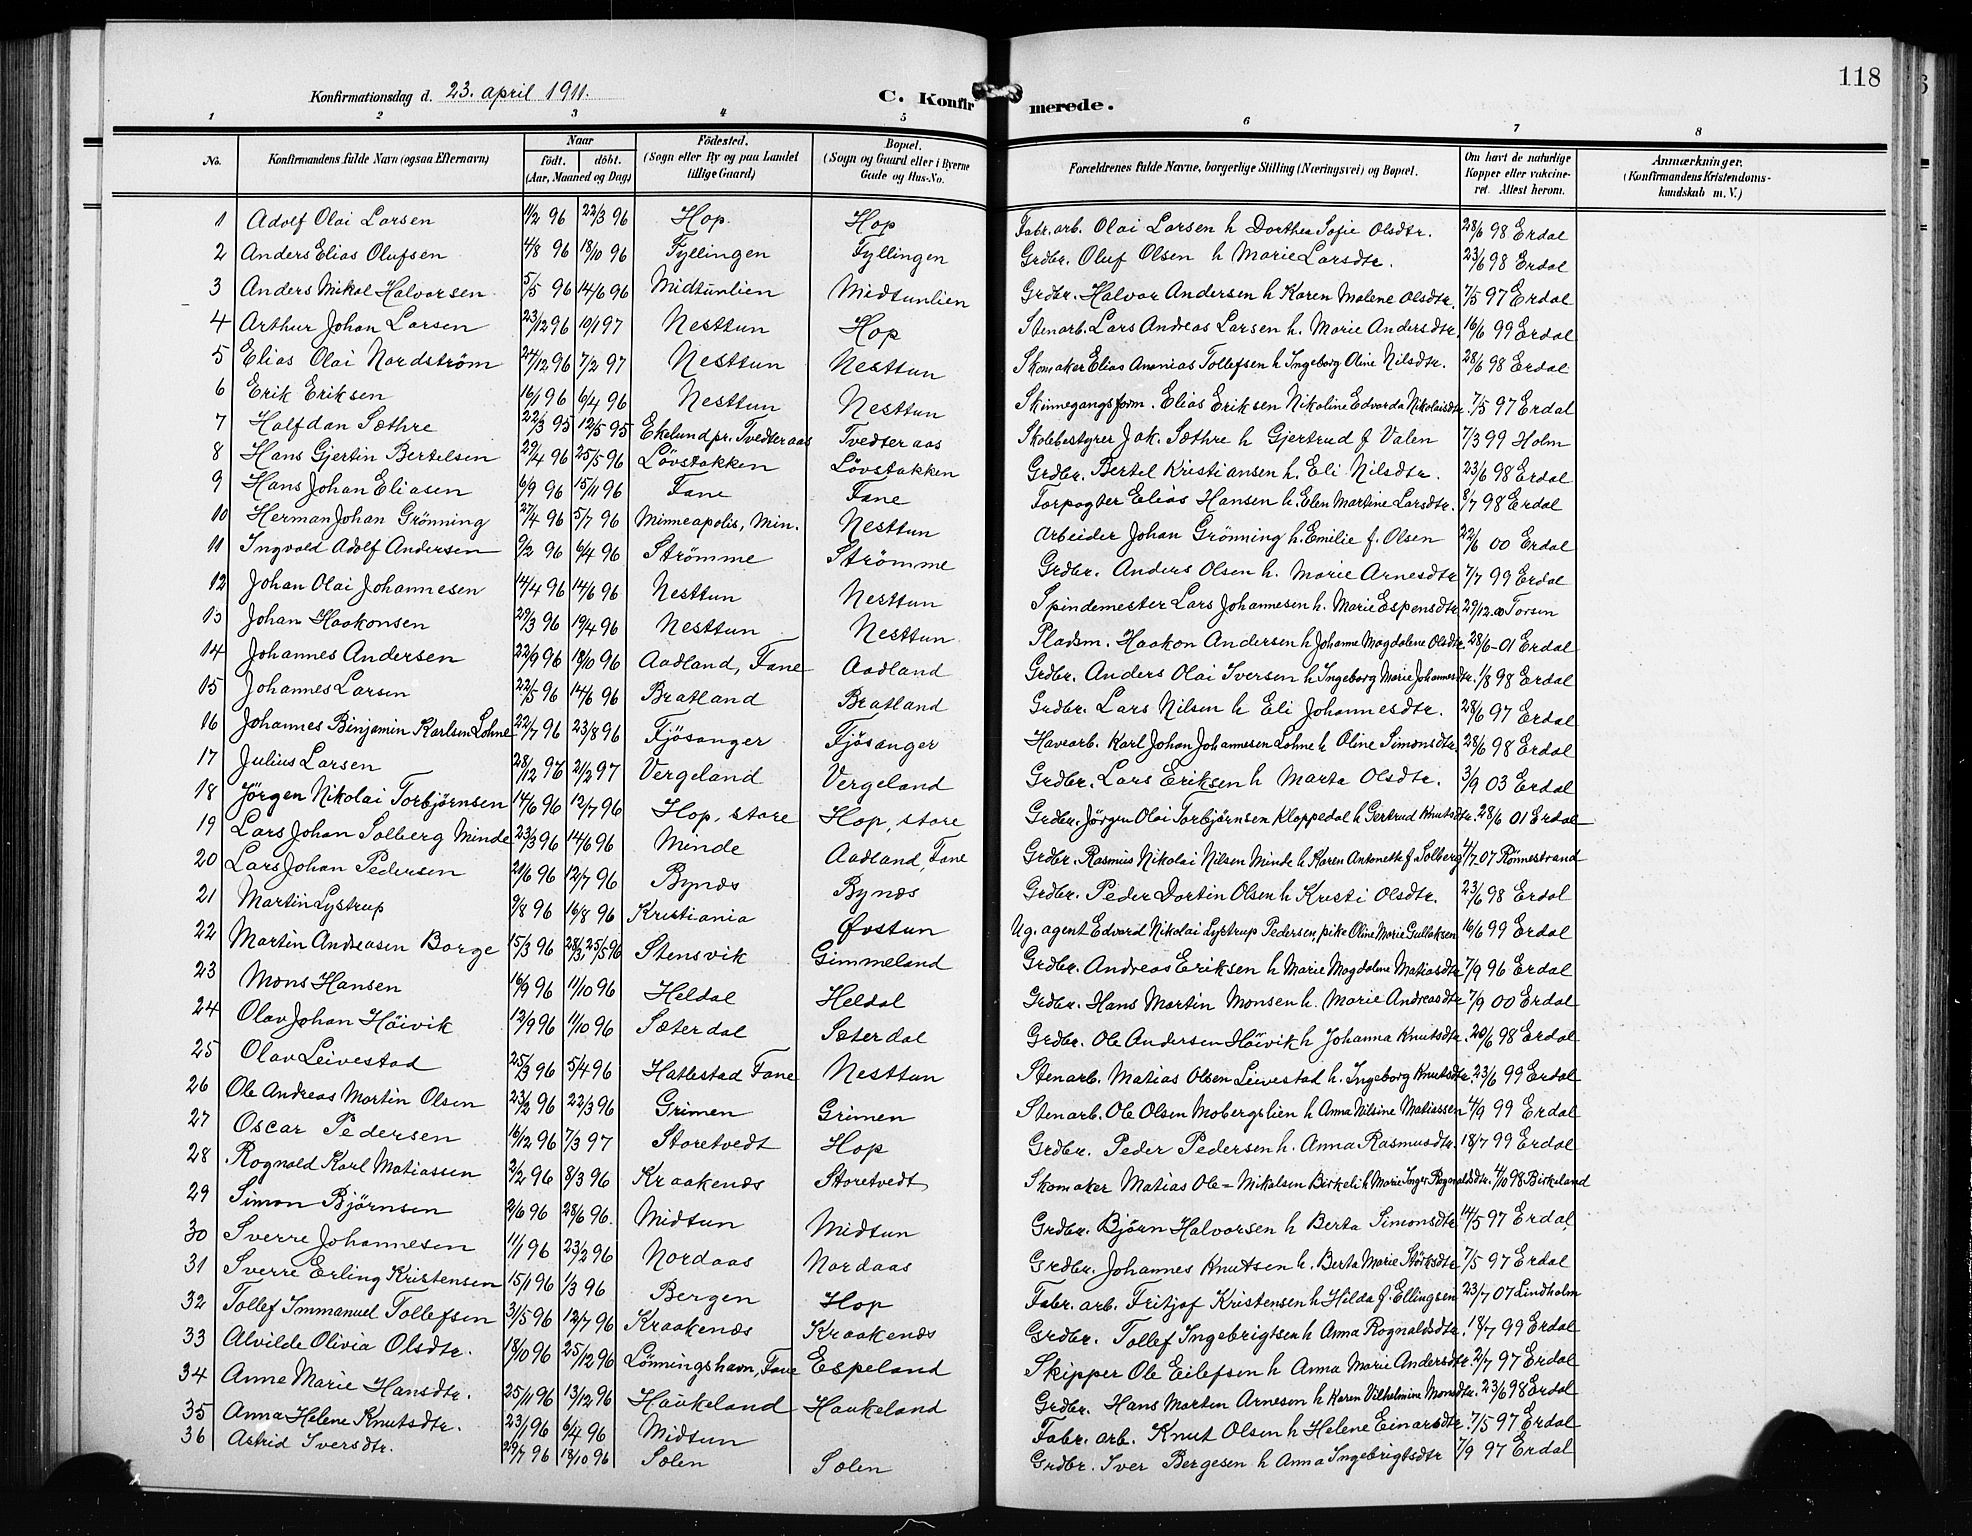 118
Konfirmationsdag d. 23. april 1911. C. Konfirmerede.
1 2 3 4 5 6 7 8
No. Konfirmandens fulde Navn (ogsaa Efternavn) Naar født. døbt. (Aar, Maaned og Dag) Födested. (Sogn eller By og paa Landet tillige Gaard) Bopæl. (Sogn og Gaard eller i Byerne Gade og Hus-No. Forældrenes fulde Navne, borgerlige Stilling (Næringsvei) og Bopæl. Om havt de naturlige Kopper eller vakcineret. Attest herom. Anmærkninger. (Konfirmandens Kristendomskundskab m. V.)
1 Adolf Olai Larsen 11/2 96 22/3 96 Hop. Hop Fabr. arb. Olai Larsen h Dorthea Sofie Olsdtr. 28/6 98 Erdal
2 Anders Elias Olufsen 4/8 96 18/10 96 Fyllingen Fyllingen Grdbr. Oluf Olsen h Marie Larsdtr. 23/6 98 Erdal
3 Anders Mikal Halvorsen 5/5 96 14/6 96 Midtunlien Midtunlien Grdbr. Halvor Andersen h Karen Malene Olsdtr. 7/5 97 Erdal
4 Arthur Johan Larsen 23/12 96 10/1 97 Nesttun Hop Stenarb. Lars Andreas Larsen h. Marie Andersdtr. 16/6 99 Erdal
5 Elias Olai Nordström 24/12 96 7/2 97 Nesttun Nesttun Skomaker Elias Ananias Tollefsen h Ingeborg Oline Nilsdtr. 28/6 98 Erdal
6 Erik Eriksen 16/1 96 6/4 96 Nesttun Nesttun Skinnegangsform. Elias Eriksen Nikoline Edvarda Nikolaisdtr. 7/5 97 Erdal
7 Halfdan Sæthre 22/3 95 12/5 95 Ekelund pr. Tvedteraas Tvedteraas Skolebestyrer Jak. Sæthre h Gjertrud f Valen 7/3 99 Holm
8 Hans Gjertin Bertelsen 29/4 96 25/5 96 Lövstakken Lövstakken Grdbr. Bertel Kristiansen h. Eli Nilsdtr. 23/6 98 Erdal
9 Hans Johan Eliasen 6/9 96 15/11 96 Fane Fane Forpagter Elias Hansen h. Elen Martine Larsdtr. 8/7 98 Erdal
10 Herman Johan Grönning 27/4 96 5/7 96 Minneapolis, Min. Nesttun Arbeider Johan Grönning h. Emilie f. Olsen 22/6 00 Erdal
11 Ingvald Adolf Andersen 9/2 96 6/4 96 Strömme Strömme Grdbr. Anders Olsen h. Marie Arnesdtr 7/7 99 Erdal
12 Johan Olai Johannesen 14/4 96 14/6 96 Nesttun Nesttun Spindemester Lars Johannesen h. Marie Espensdtr. 29/12 00 Torsen
13 Johan Haakonsen 29/3 96 19/4 96 Nesttun Nesttun Pladsm. Haakon Andersen h Johanne Magdalene Olsdtr. 28/6-01 Erdal
14 Johannes Andersen 22/9 96 18/10 96 Aadland, Fane Aadland Grdbr. Anders Olai Iversen h Ingeborg Marie Johannesdtr. 1/8 98 Erdal
15 Johannes Larsen 22/5 96 14/6 96 Bratland Bratland Grdbr. Lars Nilsen h Eli Johannesdtr. 28/6 97 Erdal
16 Johannes Binjamin Karlsen Lohne 22/7 96 23/8 96 Fjösanger Fjösanger Havearb. Karl Johan Johannesen Lohne h Oline Simonsdtr. 28/6 98 Erdal
17 Julius Larsen 28/12 96 21/2 97 Vergeland Vergeland Grdbr. Lars Eriksen h Marta Olsdtr. 3/9 03 Erdal
18 Jörgen Nikolai Torbjörnsen 14/6 96 12/7 96 Hop, store Hop, store Grdbr. Jörgen Olai Torbjörnsen Kloppedal h Gertrud Knutsdtr. 28/6 01 Erdal
19 Lars Johan Solberg Minde 23/3 96 14/6 96 Minde Aadland, Fane Grdbr. Rasmus Nikolai Nilsen Minde h Karen Antonette f Solberg 4/7 07 Rönnestrand
20 Lars Johan Pedersen 21/6 96 12/7 96 Bynæs Bynæs Grdbr. Peder Dortin Olsen h Kristi Olsdtr. 23/6 98 Erdal
21 Martin Lystrup 9/8 96 16/8 96 Kristiania Øvstun Ug. agent Edvard Nikolai Lystrup Pedersen, pike Oline Marie Gullaksen 16/6 99 Erdal
22 Martin Andreasen Borge 15/3 96 28/3, 25/5 96 Stensvik Gimmeland Grdbr. Andreas Eriksen h Marie Magdalene Matiasdtr 7/9 96 Erdal
23 Mons Hansen 16/9 96 11/10 96 Heldal Heldal Grdbr. Hans Martin Monsen h. Marie Andreasdtr 7/9 00 Erdal
24 Olav Johan Höivik 12/9 96 11/10 96 Sæterdal Sæterdal Grdbr. Ole Andersen Höivik h Johanna Knutsdtr. 20/6 98 Erdal
25 Olav Leivestad 25/3 96 5/4 96 Hatlestad Fane Nesttun Stenarb. Matias Olsen Leivestad h. Ingeborg Knutsdtr. 23/6 99 Erdal
26 Ole Andreas Martin Olsen 23/2 96 22/3 96 Grimen Grimen Stenarb. Ole Olsen Mobergslien h Anna Nilsine Matiassen 4/9 99 Erdal
27 Oscar Pedersen 16/12 96 7/3 97 Storetvedt Hop Grdbr. Peder Pedersen h. Anna Rasmusdtr. 18/7 99 Erdal
28 Rognald Karl Matiassen 2/2 96 8/3 96 Kraakenæs Storetvedt Skomaker Matias Ole= Mikalsen Birkeli h Marie Inger Rognaldsdtr. 4/10 98 Birkeland
29 Simon Björnsen 2/6 96 28/6 96. Midtun Midtun Grdbr. Björn Halvorsen h Berta Simonsdtr 14/5 97 Erdal
30 Sverre Johannesen 11/1 96 23/2 96 Nordaas Nordaas Grdbr. Johannes Knutsen h. Berta Marie Störksdtr. 7/5 97 Erdal
31 Sverre Erling Kristensen 15/1 96 1/3 96 Bergen Hop Fabr. arb. Fritjof Kristensen h Hilda f. Ellingsen 23/7 07 Lindholm
32 Tollef Immanuel Tollefsen 31/5 96 12/7 96 Kraakenæs Kraakenæs Grdbr. Tollef Ingebrigtsen h Anna Rognaldsdtr. 18/7 99 Erdal
33 Alvilde Olivia Olsdtr. 18/10 96 25/12 96 Lönningshavn, Fane Espeland Skipper Ole Eilefsen h Anna Marie Andersdtr. 2/7 97 Erdal
34 Anne Marie Hansdtr. 25/11 96 13/12 96 Haukeland Haukeland Grdbr. Hans Martin Arneson h Karen Vilhelmine Monsdtr. 23/6 98 Erdal
35 Anna Helene Knutsdtr. 23/1 96 6/4 96 Midtun Fabr. arb. Knut Olsen h Helene Einarsdtr. 7/5 97 Erdal
36 Astrid Iversdtr. 29/7 96 13/10 96 Sælen Sælen Grdbr. Iver Bergesen h Anna Ingebrigtsdtr 7/9 97 Erdal